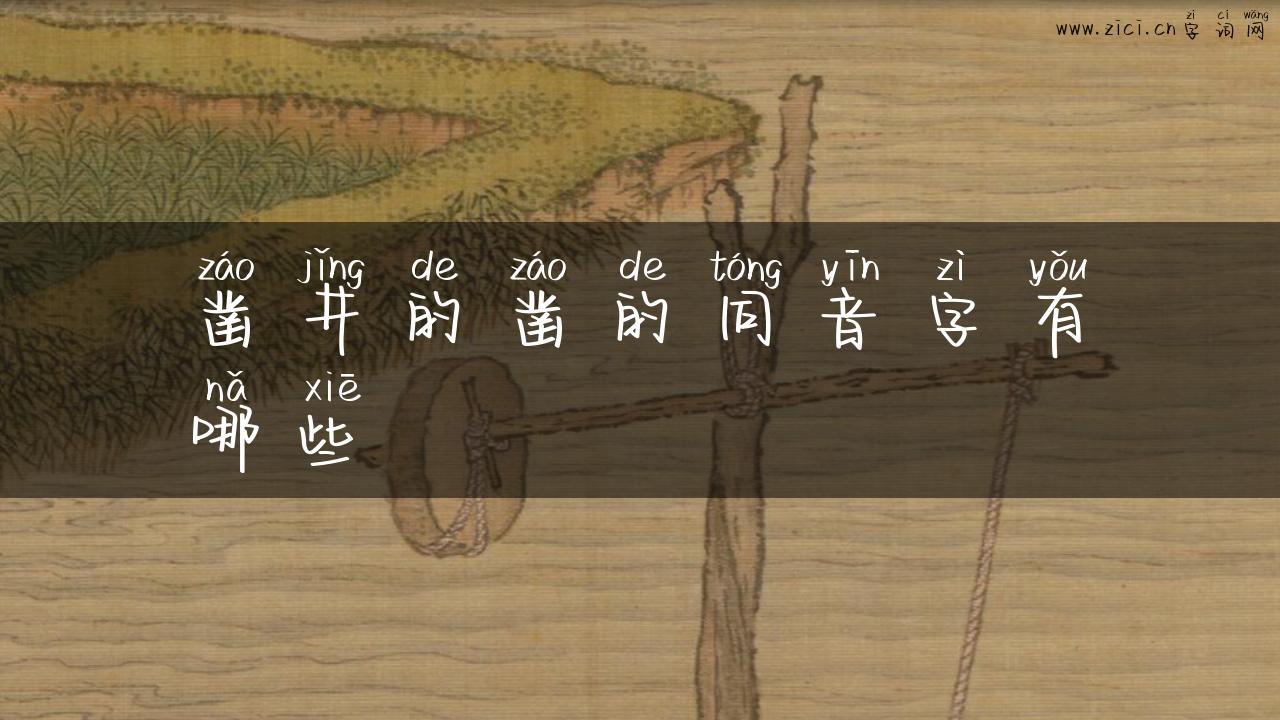 zì cí wǎng
www.zici.cn字词网
záo jǐng de záo de tóng yīn zì yǒu
凿井的凿的同音字有
nǎ xiē
哪些